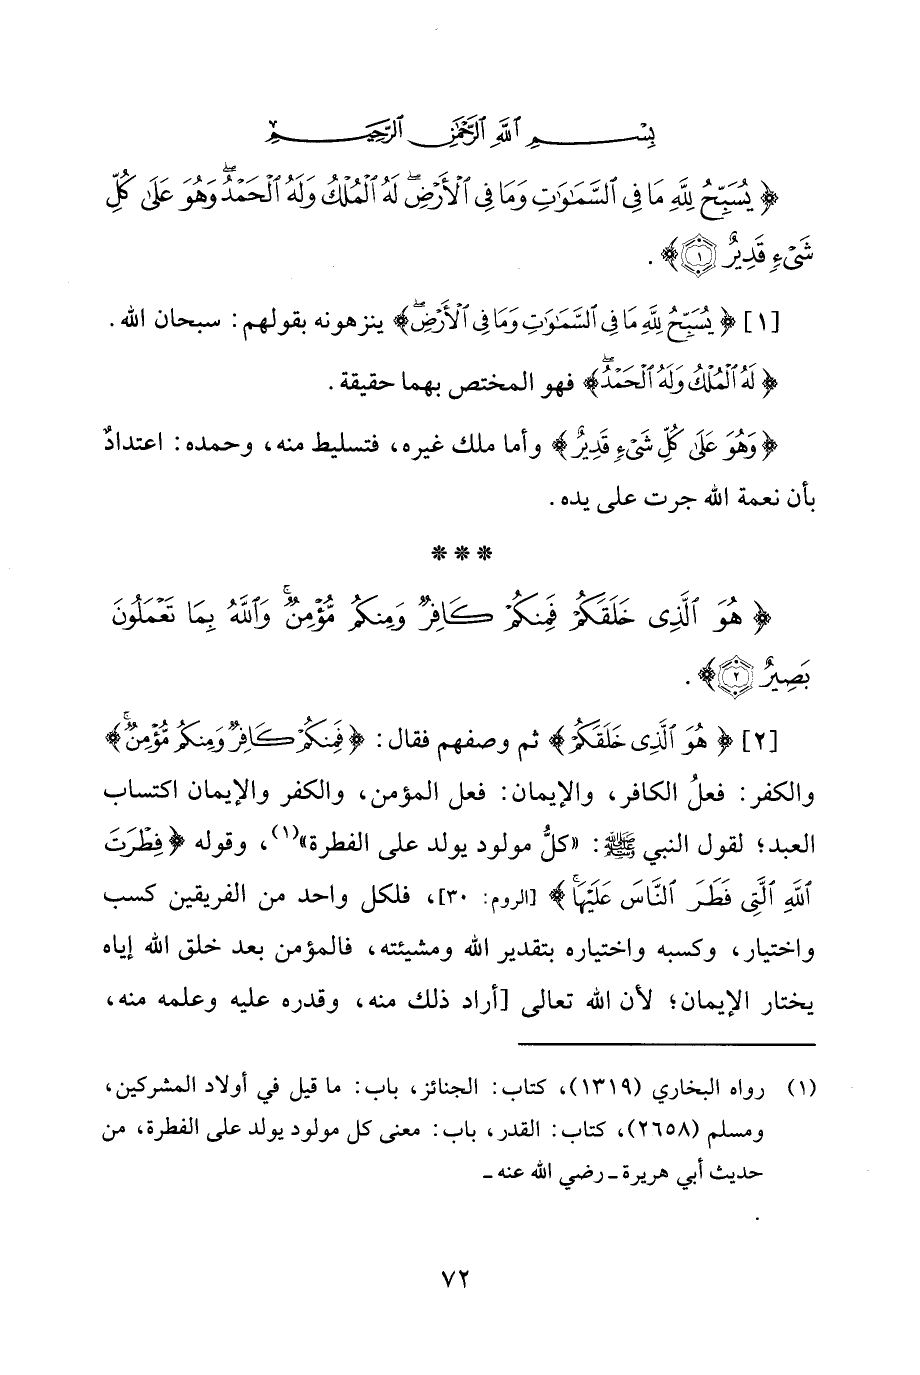 بِسْمِ ٱللَّهِ ٱلرَّحْمَٰنِ ٱلرَّحِيمِ
﴿ يُسَبِّحُ لِلَّهِ مَا فِى ٱلسَّمَٰوَٰتِ وَمَا فِى ٱلْأَرْضِۖ لَهُ ٱلْمُلْكُ وَلَهُ ٱلْحَمْدُۖ وَهُوَ عَلَىٰ كُلِّ
شَىْءٍ قَدِيرٌ ١﴾ .
[١] ﴿ يُسَبِّحُ لِلَّهِ مَا فِى ٱلسَّمَٰوَٰتِ وَمَا فِى ٱلْأَرْضِۖ﴾ ينزهونه بقولهم: سبحان الله .
﴿ لَهُ ٱلْمُلْكُ وَلَهُ ٱلْحَمْدُۖ﴾ فهو المختص بهما حقيقة .
﴿وَهُوَ عَلَىٰ كُلِّ شَىْءٍ قَدِيرٌ﴾ وأما ملك غيره، فتسليط منه، وحمده: اعتدادٌ
بأن نعمة الله جرت على يده .
* * *
﴿ هُوَ ٱلَّذِى خَلَقَكُمْ فَمِنكُمْ كَافِرٌ وَمِنكُم مُّؤْمِنٌۚ وَٱللَّهُ بِمَا تَعْمَلُونَ
بَصِيرٌ ٢﴾ .
[٢] ﴿ هُوَ ٱلَّذِى خَلَقَكُمْ﴾ ثم وصفهم فقال: ﴿فَمِنكُمْ كَافِرٌ وَمِنكُم مُّؤْمِنٌۚ﴾
والكفر: فعلُ الكافر، والإيمان: فعل المؤمن، والكفر والإيمان اكتساب
العبد؛ لقول النبي ﷺ: «كلُّ مولود يولد على الفطرة»(١)، وقوله ﴿فِطْرَتَ
ٱللَّهِ ٱلَّتِى فَطَرَ ٱلنَّاسَ عَلَيْهَاۚ﴾ [الروم: ٣٠]، فلكل واحد من الفريقين كسب
واختيار، وكسبه واختياره بتقدير الله ومشيئته، فالمؤمن بعد خلق الله إياه
يختار الإيمان؛ لأن الله تعالى [أراد ذلك منه، وقدره عليه وعلمه منه،
(١) رواه البخاري (١٣١٩)، كتاب: الجنائز، باب: ما قيل في أولاد المشركين،
ومسلم (٢٦٥٨)، كتاب: القدر، باب: معنى كل مولود يولد على الفطرة، من
حديث أبي هريرة ـ رضي الله عنه ـ
.
٧٢